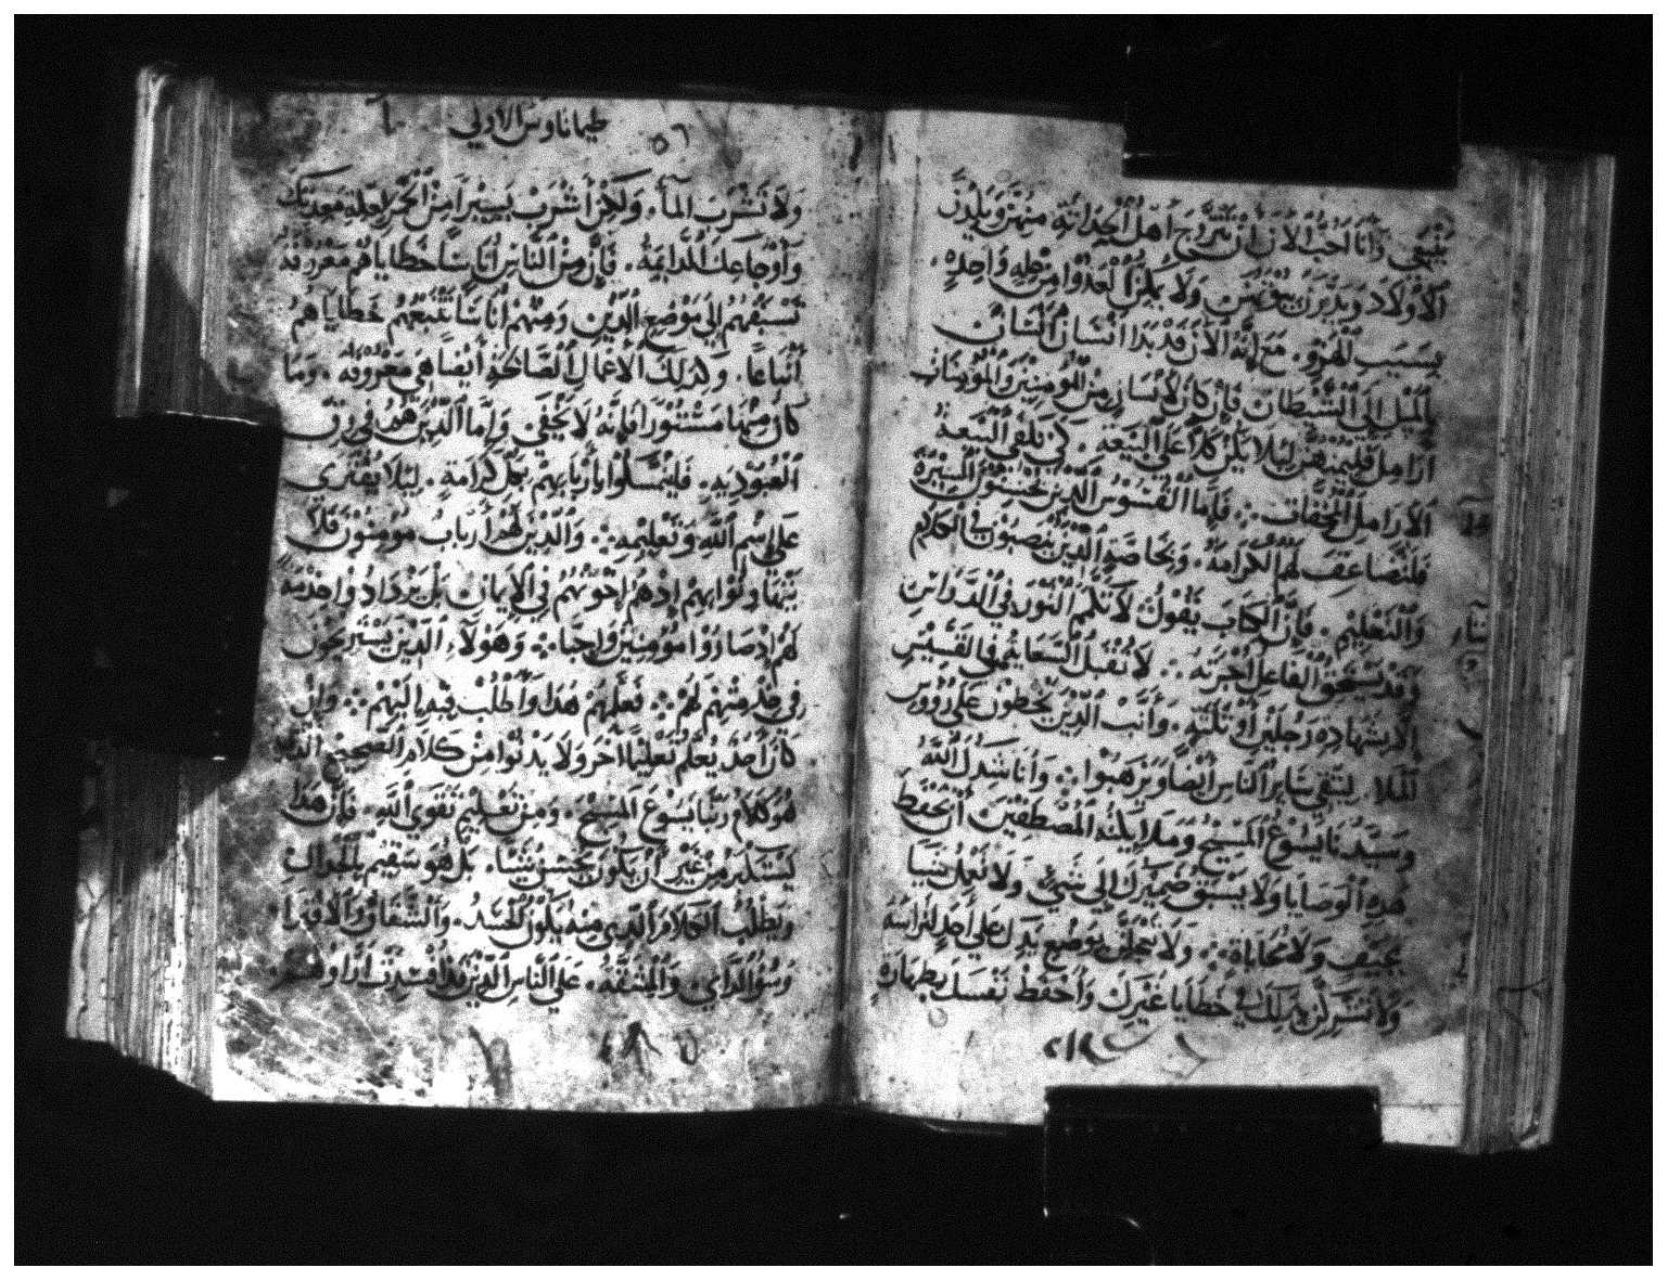 ينبغي وانا احب الان ان تتزوج اهل الحداثه منهن ويلدن
الاولاد ويدبرن بيوتهن ولا يكن للعدو من جهه واحده
بسبب الهزو. مع انه الان قد بدا انسان انسان
بالميل الى الشيطان فان كان لانسان من المومنين والمومنات
ارامل فليمنهن ليلا يكن كلا على البيعه. كي تلقى البيعه
الارامل المحقات فاما القسوس الذين يحسنون السيره
فلتضاعف لهم الكرامه. وبخاصه الذين ينصبون في الكلام
والتعليم. فان الكتاب يقول لا تكمم الثور في الدراس
وقد يستحق الفاعل اجرته لا تقبل السعايه في القسيس
الا بشهاده رجلين او ثلثه. وانب الذين يخطون على رووس
الملا ليتقي ساير الناس ايضا ويرهبوا وانا شدك الله
وسيدنا يسوع المسيح وملايكته المصطفين ان تحفظ
هذه الوصايا ولا يسبق ضميرك الى شي ولا تعمل شيا
بحيف ولا محاباة ولا تعجلن بوضع يدك على احد
ولا تشتركن بذلك في خطايا غيرك واحفظ نفسك بطهاره
طيماثاوس الاولى
٥٦
ولا تشرب الما. ولكن اشرب يسيرا من الخمر لعله معدتك
واوجاعك الدايمه. فان من الناس اناسا خطاياهم معروفه
تسبقهم الى موضع الدين ومنهم اناسا تتبعهم خطاياهم
اتباعا. وكذلك الاعمال الصالحه ايضا هي معروفه. وما
كان منها مستورا فانه لا يخفى واما الذين هم في رق
العبوديه. فليتمسكوا باربابهم بكل كرامه. ليلا يفترى
على اسم الله وتعليمه والذين لهم ارباب مومنون فلا
يتهاونوا بهم اذ هم اخوتهم في الايمان بل يزدادوا خدمه
لهم اذ صاروا مومنين واحبا وهولاء الذين يستريحون
في خدمتهم لهم فعلمهم هذا واطلب فيه اليهم وان
كان احد يعلم تعليما اخر ولا يدنوا من كلام الصحيح الذي
هو كلام ربنا يسوع المسيح. ومن تعليم تقوى الله. فان هذا
يستكبر من غير ان يكون يحسن شيا. بل هو سقيم بالجدال
وبطلب الكلام الذي منه يكون الحسد. والشقاق والافترا
وسو الراي. والمشقه. على الناس الذين قد افسدت اراوهم